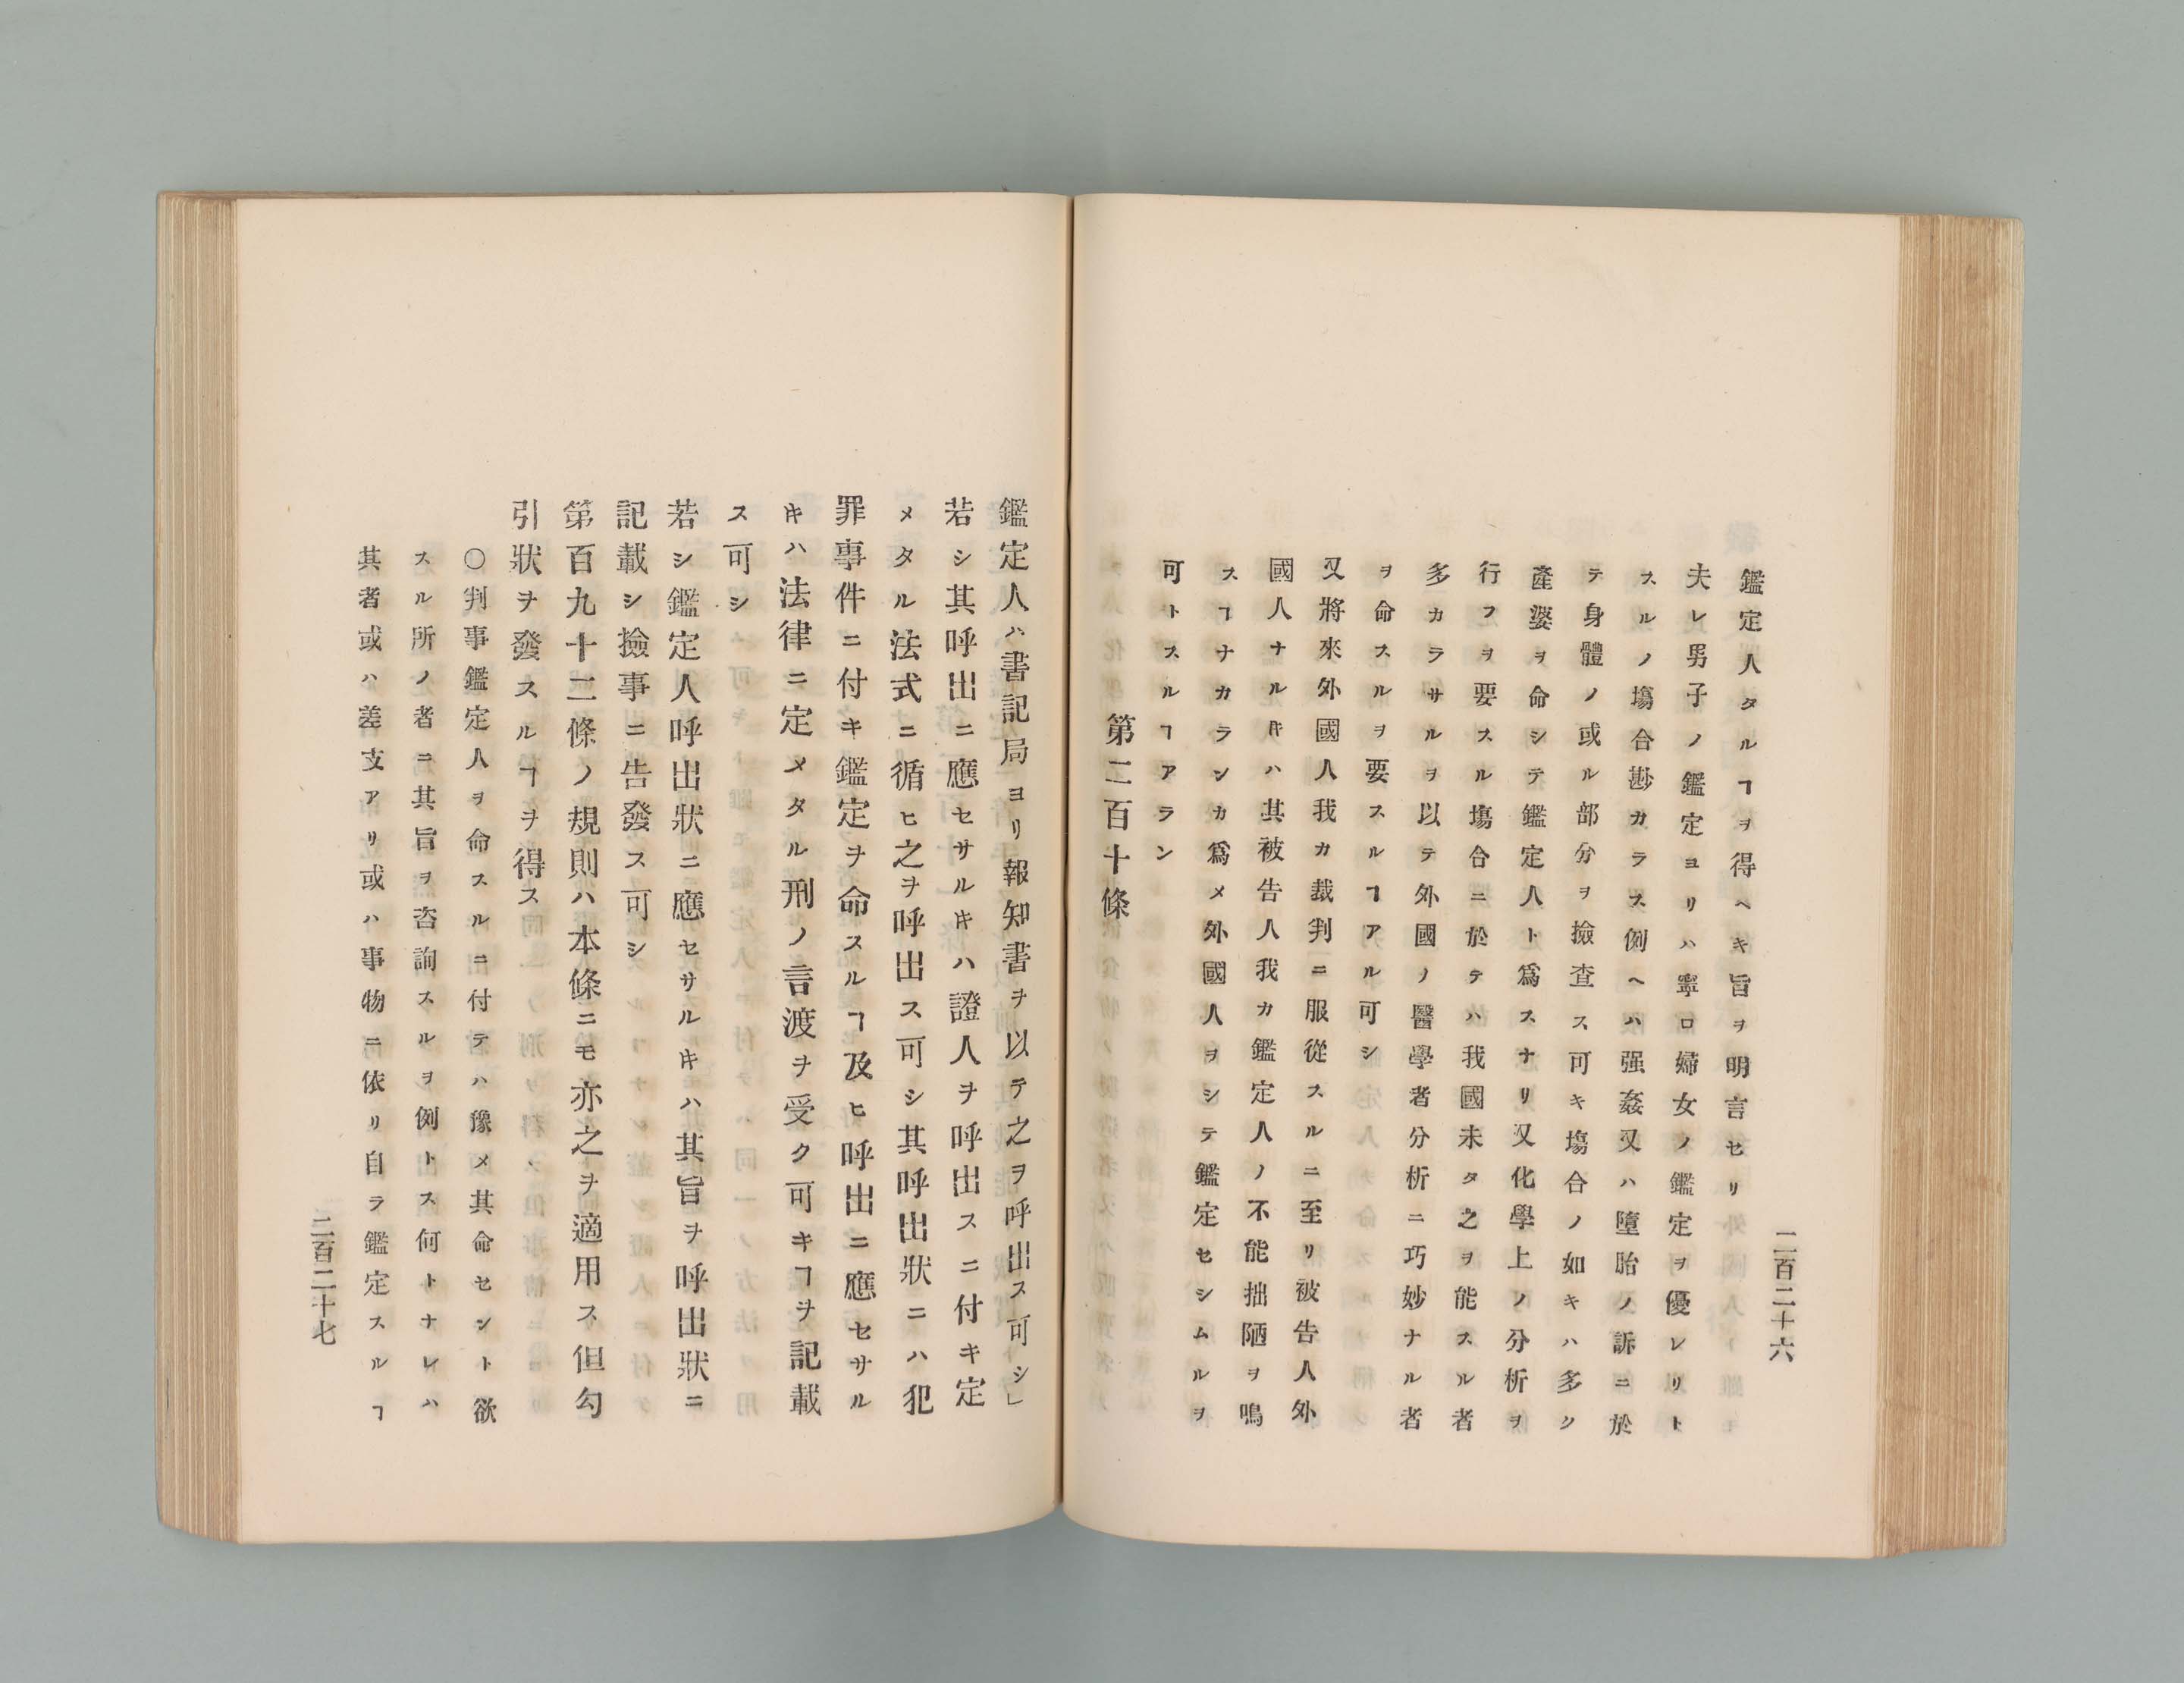 二百二十六
鑑定人タルヿヲ得ヘキ旨ヲ明言セリ
夫レ男子ノ鑑定ヨリハ寧ロ婦女ノ鑑定ヲ優レリト
スルノ塲合尠カラス例ヘハ强姦又ハ墮胎ノ訴ニ於
テ身體ノ或ル部分ヲ撿查ス可キ塲合ノ如キハ多ク
產婆ヲ命シテ鑑定人ト爲スナリ又化學上ノ分析ヲ
行フヲ要スル塲合ニ於テハ我國未タ之ヲ能スル者
多カラサルヲ以テ外國ノ醫學者分析ニ巧妙ナル者
ヲ命スルヲ要スルヿアル可シ
又將來外國人我カ裁判ニ服從スルニ至リ被告人外
國人ナルキハ其被告人我カ鑑定人ノ不能拙陋ヲ鳴
スヿナカランカ爲メ外國人ヲシテ鑑定セシムルヲ
可トスルヿアラン
第二百十條
鑑定人ハ書記局ヨリ報知書ヲ以テ之ヲ呼出ス可シ」
若シ其呼出ニ應セサルキハ證人ヲ呼出スニ付キ定
メタル法式ニ循ヒ之ヲ呼出ス可シ其呼出狀ニハ犯
罪事件ニ付キ鑑定ヲ命スルヿ及ヒ呼出ニ應セサル
キハ法律ニ定メタル刑ノ言渡ヲ受ク可キヿヲ記載
ス可シ
若シ鑑定人呼出狀ニ應セサルキハ其旨ヲ呼出狀ニ
記載シ撿事ニ告發ス可シ
第百九十二條ノ規則ハ本條ニモ亦之ヲ適用ス但勾
引狀ヲ發スルヿヲ得ス
〇判事鑑定人ヲ命スルニ付テハ豫メ其命セント欲
スル所ノ者ニ其旨ヲ咨詢スルヲ例トス何トナレハ
其者或ハ差支アリ或ハ事物ニ依リ自ラ鑑定スルヿ
二百二十七